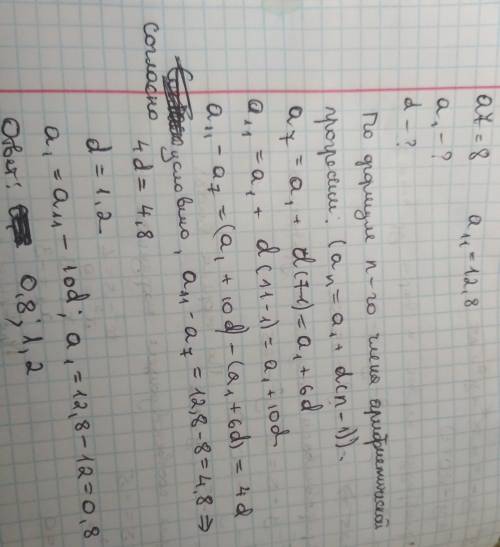 a7 = 8    a₁₁ = 12,8
a₁ - ?
d - ?
По формуле n-го члена арифметической
прогрессии: (aₙ = a₁ + d(n-1)):
a₇ = a₁ + d(7-1) = a₁ + 6d
a₁₁ = a₁ + d(11-1) = a₁ + 10d
a₁₁ - a₇ = (a₁ + 10d) - (a₁ + 6d) = 4d
Согласно условию, a₁₁ - a₇ = 12,8 - 8 = 4,8 ⇒
4d = 4,8
d = 1,2
a₁ = a₁₁ - 10d; a₁ = 12,8 - 12 = 0,8
Ответ: 0,8; 1,2